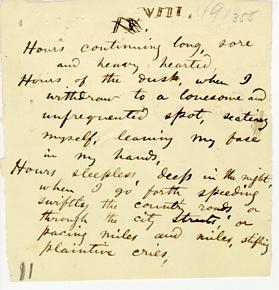 VIII.
IX.
355
Hours continuing long, sore
and heavy hearted,
Hours of the dusk, when I
withdraw to a lonesome and
unfrequented spot, seating
myself, leaning my face
in my hands,
Hours sleepless, deep in the night,
when I go forth speeding
swiftly the country roads, or
through the city streets, or
pacing miles and miles, stifling
plaintive cries,
11